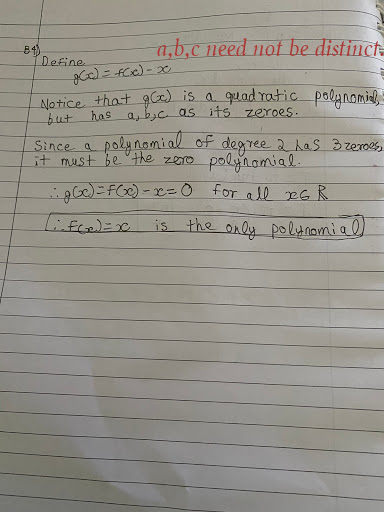 a,b,c need not be distinct
B4)
Define
g(x) = f(x) - x
Notice that g(x) is a quadratic polynomial,
but has a, b, c as its zeroes.
Since a polynomial of degree 2 has 3 zeroes,
it must be the zero polynomial.
∴ g(x) = f(x) - x = 0 for all x ∈ R
∴ f(x) = x is the only polynomial